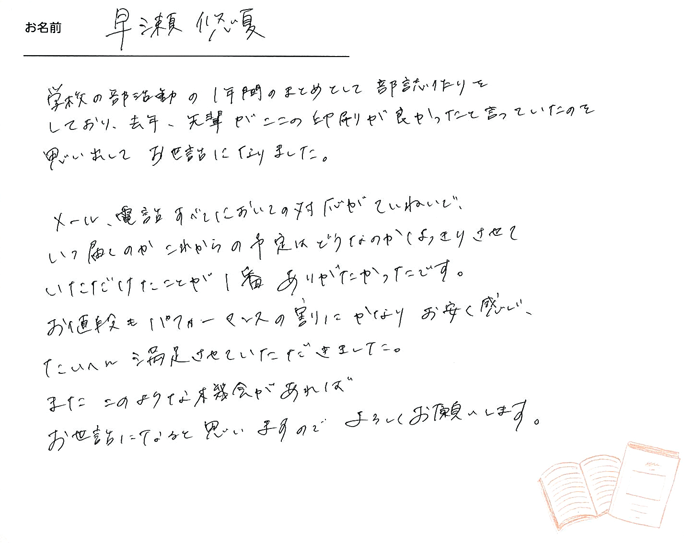 お名前 早瀬 悠夏
学校の部活動の1年間のまとめとして 部誌作りを
しており、去年、先輩がここの印刷が良かったと言っていたのを
思い出して お世話になりました。
メール、電話すべてにおいての対応がていねいで、
いつ届くのか これからの予定はどうなのかはっきりさせて
いただけたことが 1番 ありがたかったです。
お値段も パフォーマンスの割に かなり お安く感じ、
たいへん 満足させていただきました。
また このような機会があれば
お世話になると思いますので よろしくお願いします。